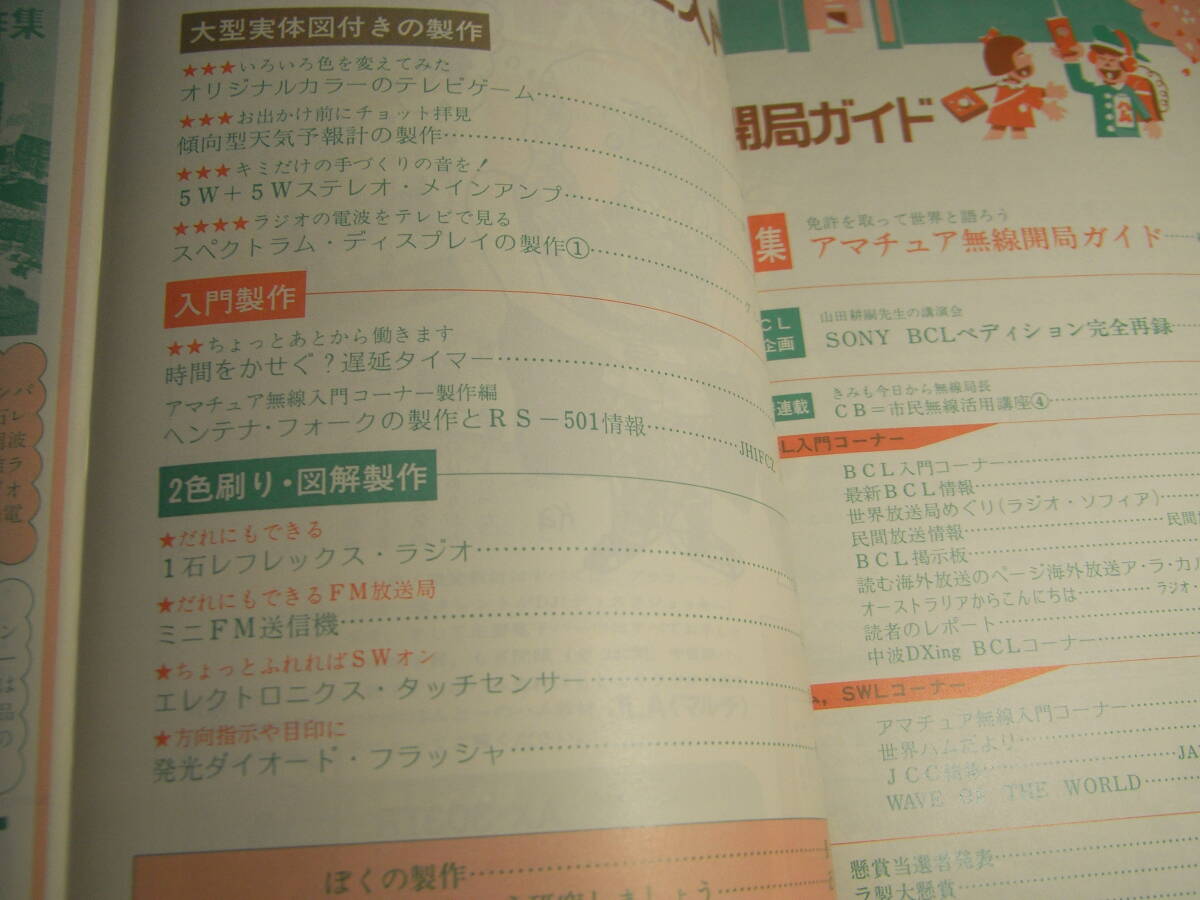 大型実体図付きの製作
★★★いろいろ色を変えてみた
オリジナルカラーのテレビゲーム
★★★お出かけ前にチョット拝見
傾向型天気予報計の製作
★★★キミだけの手づくりの音を!
5W+5Wステレオ・メインアンプ
★★★★ラジオの電波をテレビで見る
スペクトラム・ディスプレイの製作①
入門製作
★★ちょっとあとから働きます
時間をかせぐ?遅延タイマー
アマチュア無線入門コーナー製作編
ヘンテナ・フォークの製作とRS-501情報
JH1FCZ
2色刷り・図解製作
★だれにもできる
1石レフレックス・ラジオ
★だれにもできるFM放送局
ミニFM送信機
★ちょっとふれればSWオン
エレクトロニクス・タッチセンサー
★方向指示や目印に
発光ダイオード・フラッシャ
ぼくの製作
開局ガイド
集
免許を取って世界と語ろう
アマチュア無線開局ガイド
CL
企画
山田耕嗣先生の講演会
SONY BCLペディション完全再録
連載
きみも今日から無線局長
CB=市民無線活用講座④
L入門コーナー
BCL入門コーナー
最新BCL情報
世界放送局めぐり(ラジオ・ソフィア)
民間放送情報
民間
BCL掲示板
読む海外放送のページ海外放送ア・ラ・カル
オーストラリアからこんにちは
ラジオ・
読者のレポート
中波DXing BCLコーナー
SWLコーナー
アマチュア無線入門コーナー
世界ハムだより
JCC情報
JA
WAVE OF THE WORLD
懸賞当選者発表
ラ製大懸賞